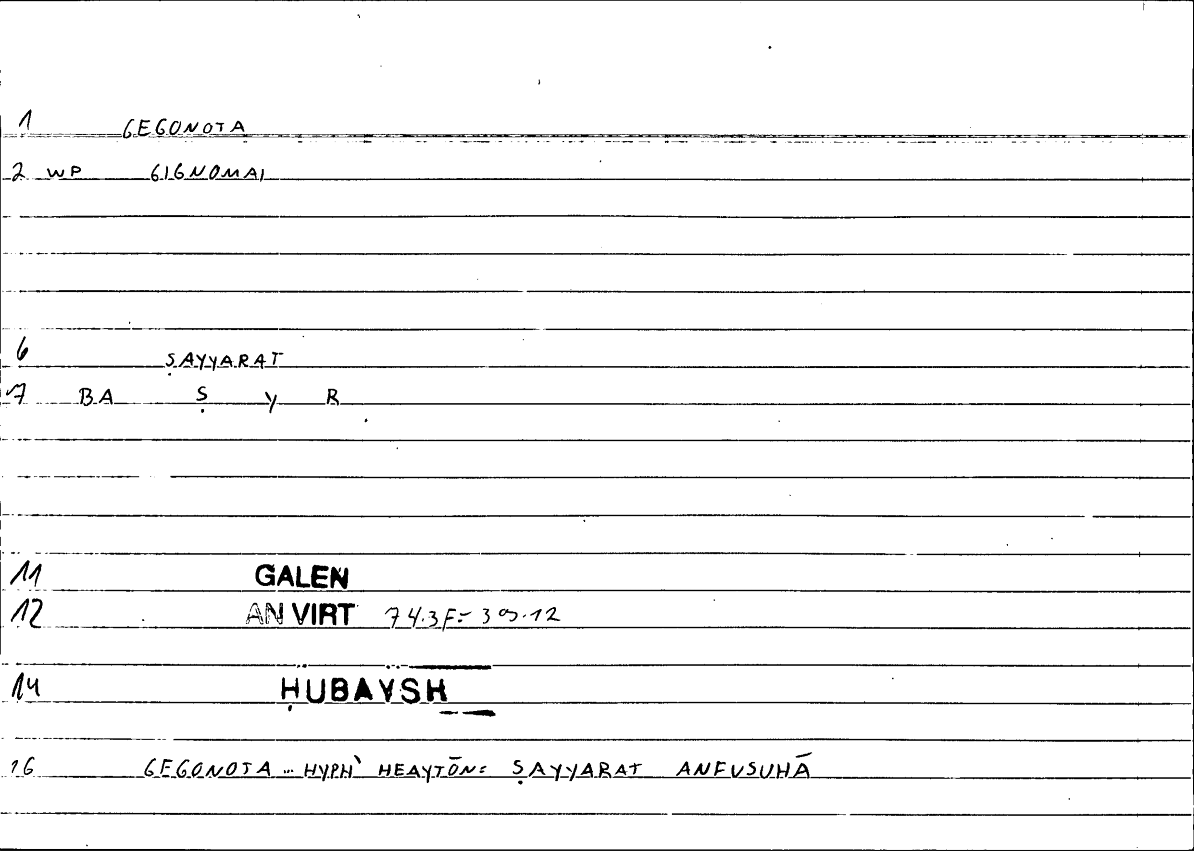 1 GEGONOTA
2 WP GIGNOMAI
6 ṢAYYARAT
7 BA Ṣ Y R
11 GALEN
12 AN VIRT 74.3F= 309.12
14 ḤUBAYSH
16 GEGONOTA ... HYPH` HEAYTŌN= ṢAYYARAT ANFUSUHĀ